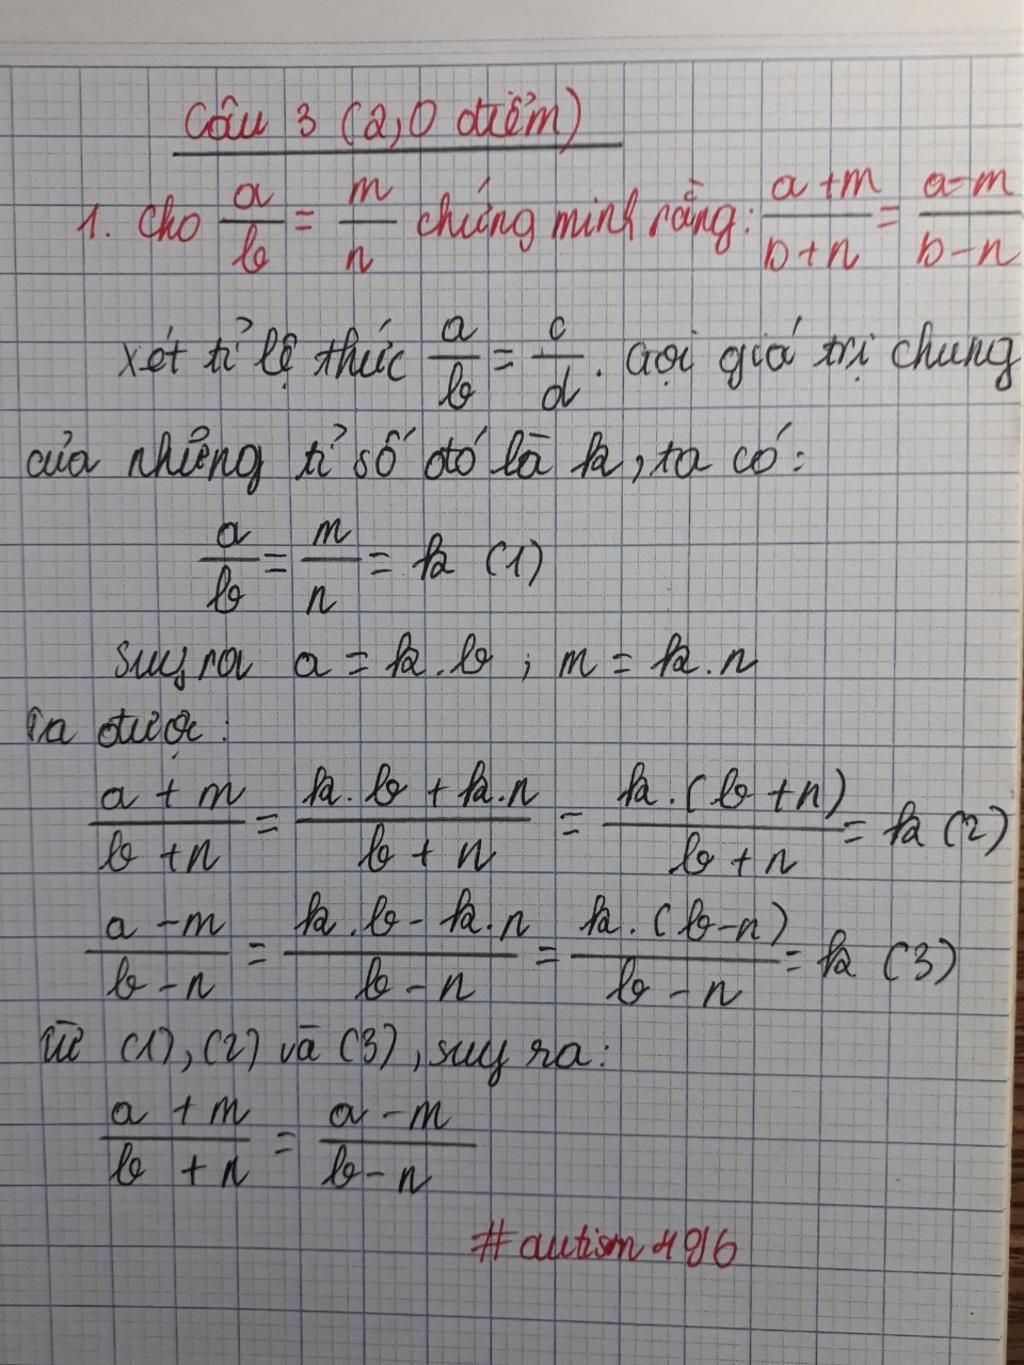 Câu 3 (2,0 điểm)
1. Cho a/b = m/n chứng minh rằng: a+m/b+n = a-m/b-n
Xét tỉ lệ thức a/b = c/d. Gọi giá trị chung
của những tỉ số đó là k, ta có:
a/b = m/n = k (1)
Suy ra a = k.b ; m = k.n
Ta được:
a+m/b+n = k.b+k.n/b+n = k.(b+n)/b+n = k (2)
a-m/b-n = k.b-k.n/b-n = k.(b-n)/b-n = k (3)
Từ (1), (2) và (3), suy ra:
a+m/b+n = a-m/b-n